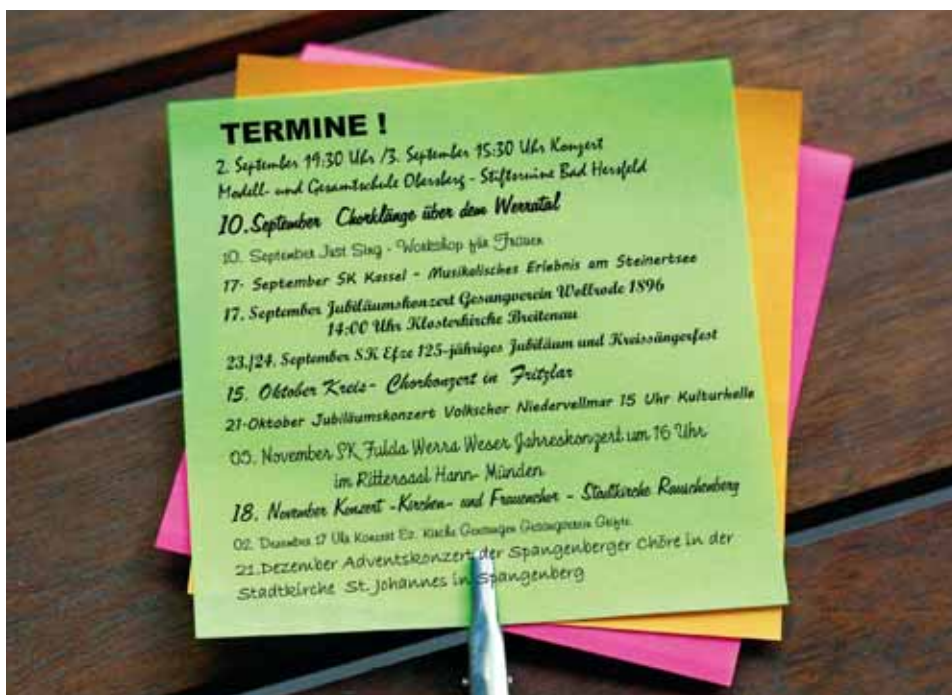 TERMINE !
2. September 19:30 Uhr /3. September 15:30 Uhr Konzert
Modell- und Gesamtschule Obersberg - Stiftsruine Bad Hersfeld
10.September Chorklänge über dem Werratal
10. September Just Sing - Workshop für Frauen
17. September SK Kassel - Musikalisches Erlebnis am Steinertsee
17. September Jubiläumskonzert Gesangverein Wollrode 1896
14:00 Uhr Klosterkirche Breitenau
23./24. September SK Efze 125-jähriges Jubiläum und Kreissängerfest
15. Oktober Kreis- Chorkonzert in Fritzlar
21.Oktober Jubiläumskonzert Volkschor Niedervellmar 15 Uhr Kulturhalle
05. November SK Fulda Werra Weser Jahreskonzert um 16 Uhr
im Rittersaal Hann- Münden
18. November Konzert -Kirchen- und Frauenchor - Stadtkirche Rauschenberg
02. Dezember 17 Uhr Konzert Ev. Kirche Gesangverein
21.Dezember Adventskonzert der Spangenberger Chöre in der
Stadtkirche St. Johannes in Spangenberg